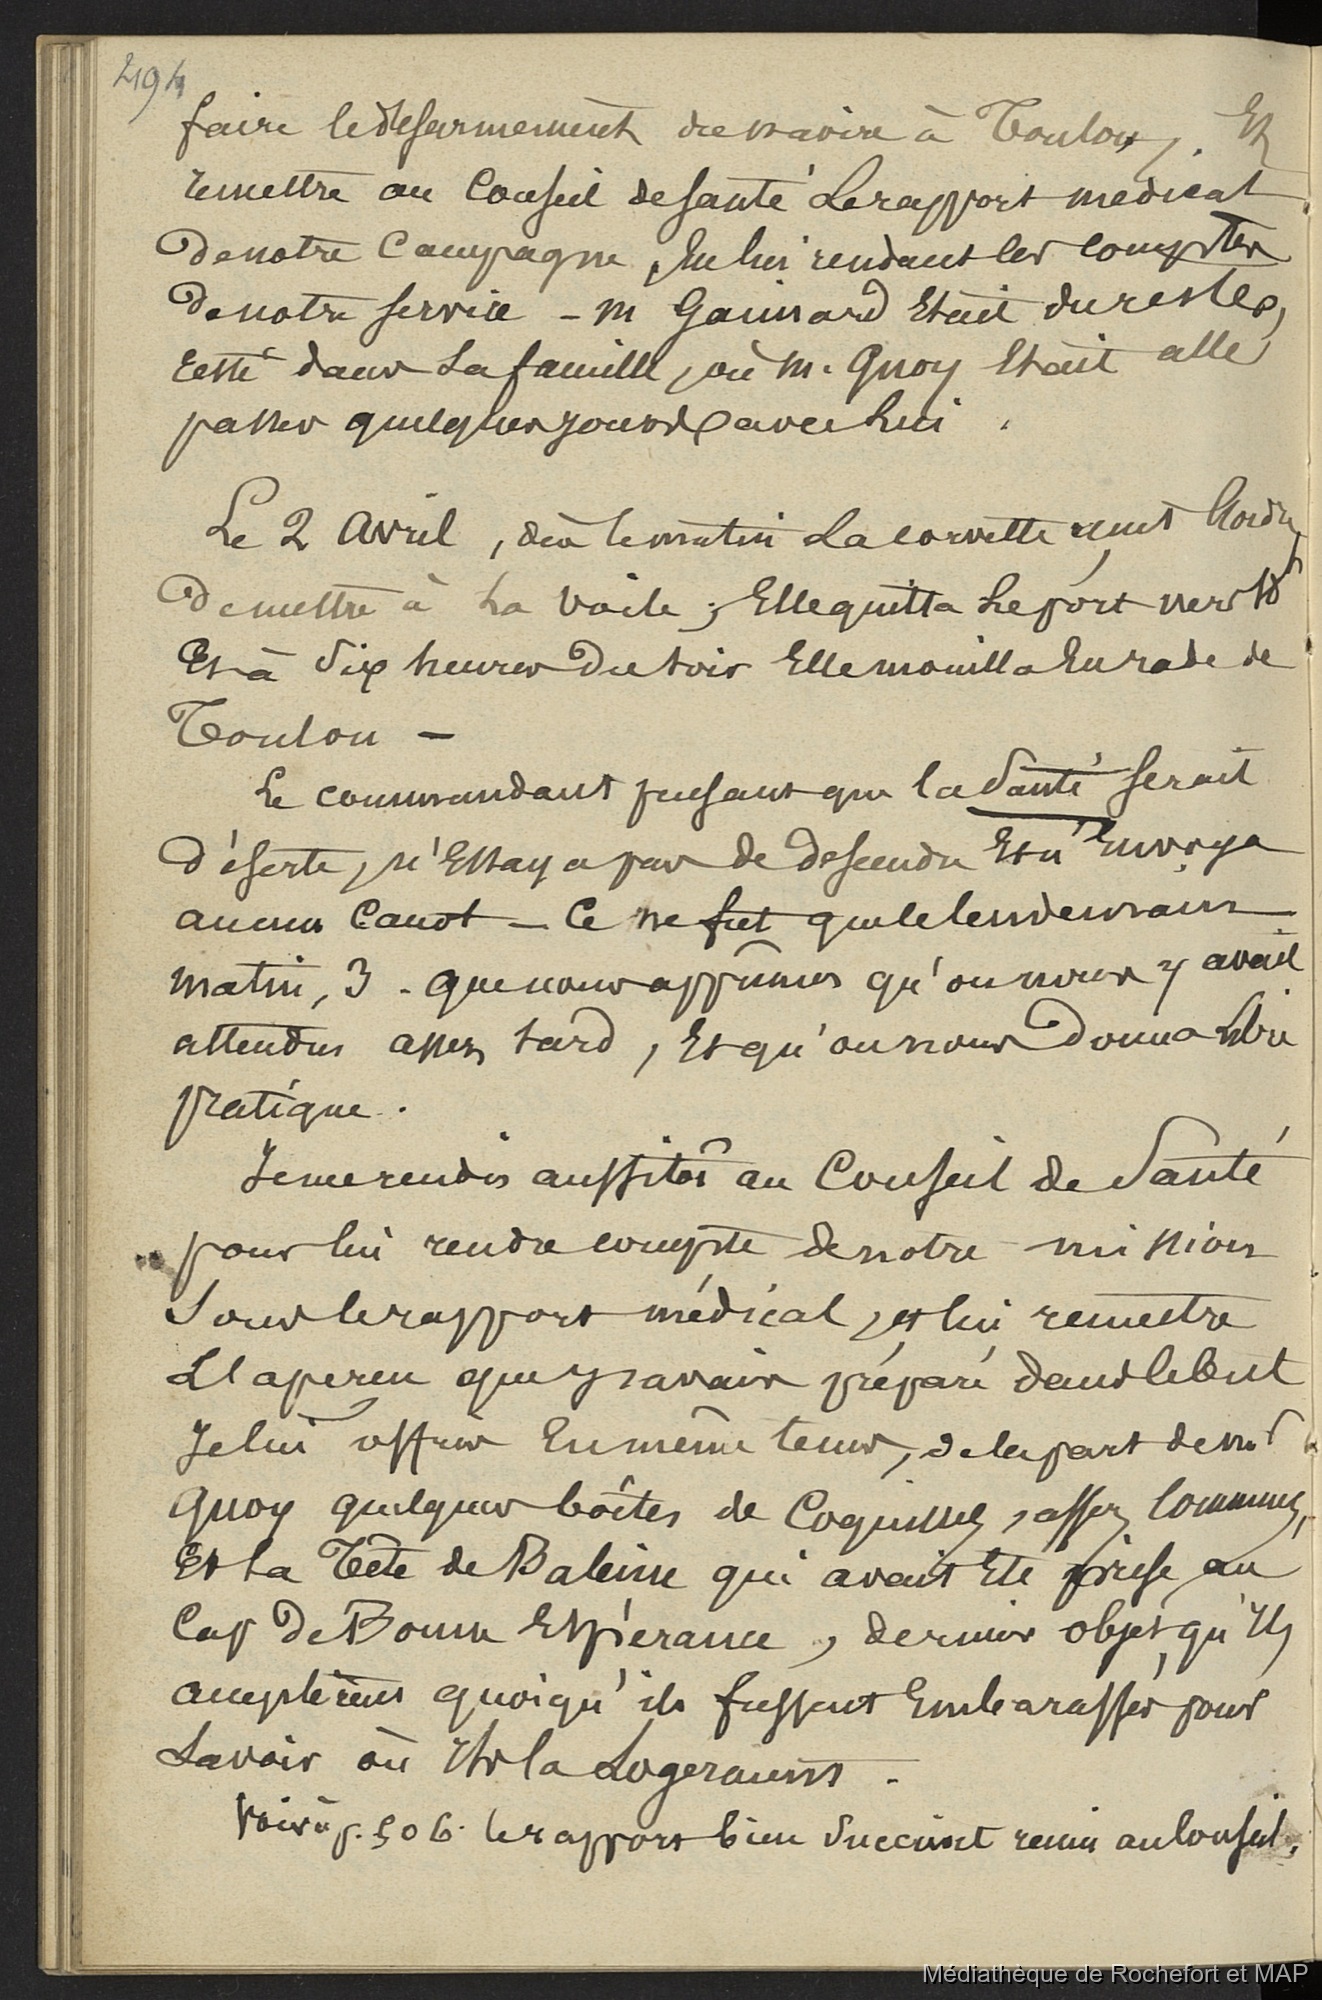 494
faire le désarmement du navire à Toulon, Et
remettre au Conseil de santé Le rapport médical
De notre Campagne, En lui rendant les comptes
De notre service – M Gaimard Etait du reste,
resté dans sa famille, où M. Quoy Etait allé
passer quelques jours avec Lui.
Le 2 Avril, dès le matin La corvette reçut l'ordre
De mettre à la Voile ; Elle quitta Le port vers 10h
Et à Six heures Du soir Elle mouilla En rade de
Toulon –
Le commandant pensant que la Santé serait
D'éserte, n'Essaya pas de descendre Et n'Envoya
aucun Canot – Ce ne fut que le lendemain
matin, 3 - que nous apprîmes qu'on nous y avait
attendus assez tard, Et qu'on nous Donna Libre
pratique.
Je me rendis aussitôt au Conseil de Santé
pour lui rendre compte de notre mission
Sous le rapport médical, et lui remettre
L'apercu que j'avais préparé dans le but
Je lui offris En même tems, de la part de Mr
Quoy quelques boîtes de Coquilles, assez Communes,
Et La Tête de Baleine qui avait Eté prise au
Cap De Bonne Espérance, dernier objet qu'Ils
acceptèrent quoiqu'ils fussent Embarassés pour
Savoir où Ils la Logeraient –
Voir à p. 506. le rapport bien Succinct remis au Conseil.
Médiathèque de Rochefort et MAP